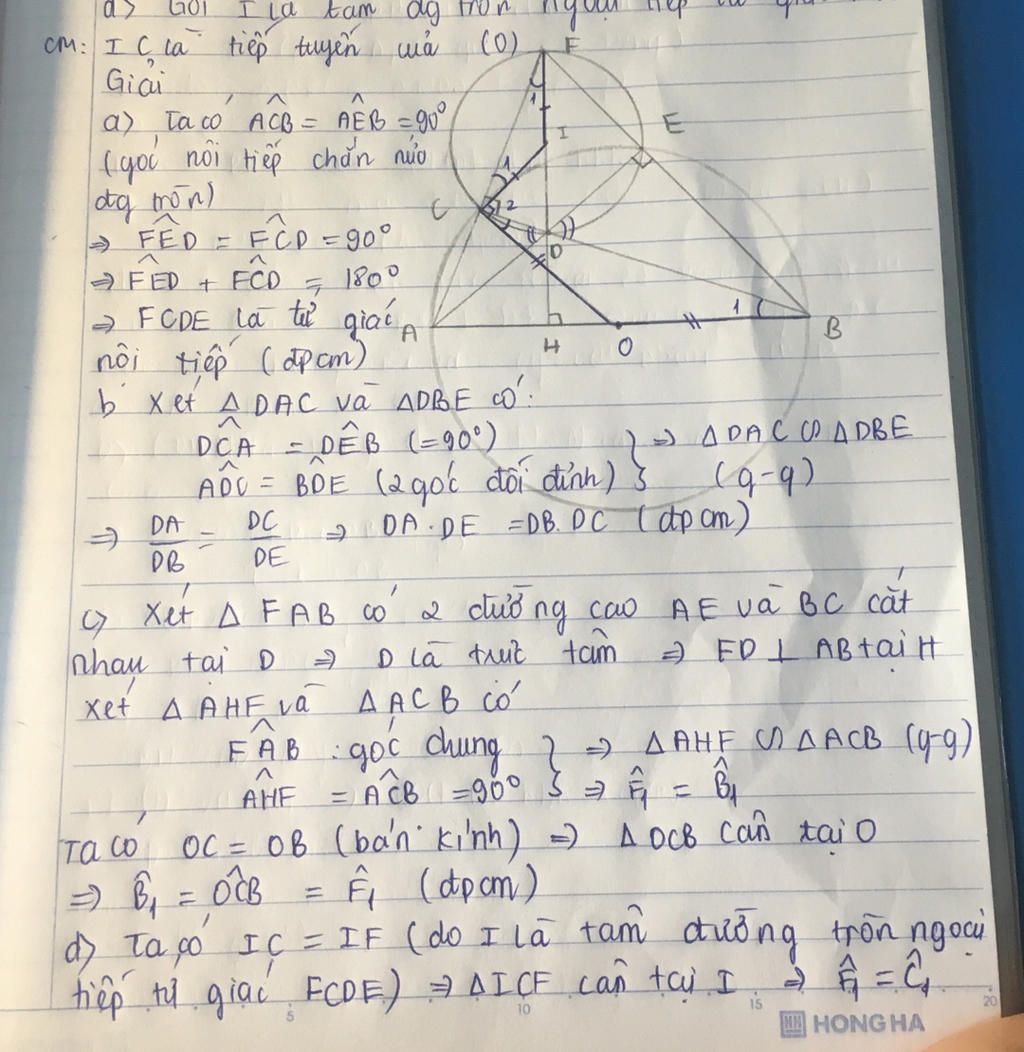 d) Gọi I là tâm đg tròn ngoại tiếp tứ
CM: IC là tiếp tuyến của (O)
Giải
a) Ta có ACB = AEB = 90°
(góc nội tiếp chắn nửa
đg tròn)
⇒ FED = FCD = 90°
⇒ FED + FCD = 180°
⇒ FCDE là tứ giác
nội tiếp (đpcm)
F
1
I
E
1
C
2
D
A
H
O
1
B
b xét △DAC và △DBE có:
DCA = DEB (=90°)
ADC = BDE (2 góc đối đỉnh) } ⇒ △DAC ∽ △DBE (g-g)
⇒ DA/DB = DC/DE ⇒ DA.DE = DB.DC (đpcm)
c) xét △FAB có 2 đường cao AE và BC cắt
nhau tại D ⇒ D là trực tâm ⇒ FD ⊥ AB tại H
xét △AHF và △ACB có
FAB : góc chung
AHF = ACB = 90° } ⇒ △AHF ∽ △ACB (g-g)
⇒ F̂₁ = B̂₁
Ta có OC = OB (bán kính) ⇒ △OCB cân tại O
⇒ B̂₁ = OCB = F̂₁ (đpcm)
d) Ta có IC = IF (do I là tâm đường tròn ngoại
tiếp tứ giác FCDE) ⇒ △ICF cân tại I ⇒ F̂₁ = Ĉ₁
5 10 15 20
HONG HA